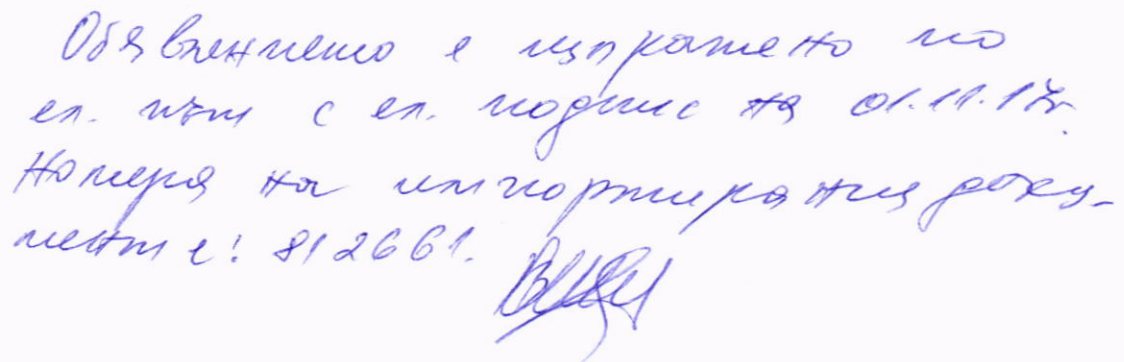 Обявлението е изпратено по
ел. път с ел. подпис на 01.11.17г.
Номера на импортирания доку-
мент е: 812661.